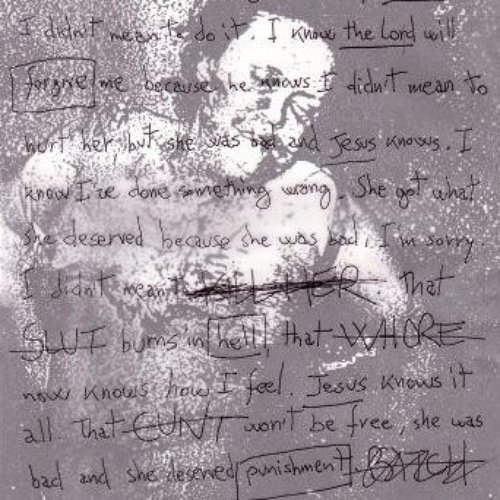 I didn't mean to do it. I know the Lord will
forgive me because he knows I didn't mean to
hurt her, but she was bad and Jesus knows. I
know I've done something wrong. She got what
she deserved because she was bad, I'm sorry.
I didn't mean t KILL HER. That
SLUT burns in hell, that WHORE
now knows how I feel. Jesus knows it
all. That CUNT won't be free, she was
bad and she deserved punishment. BITCH